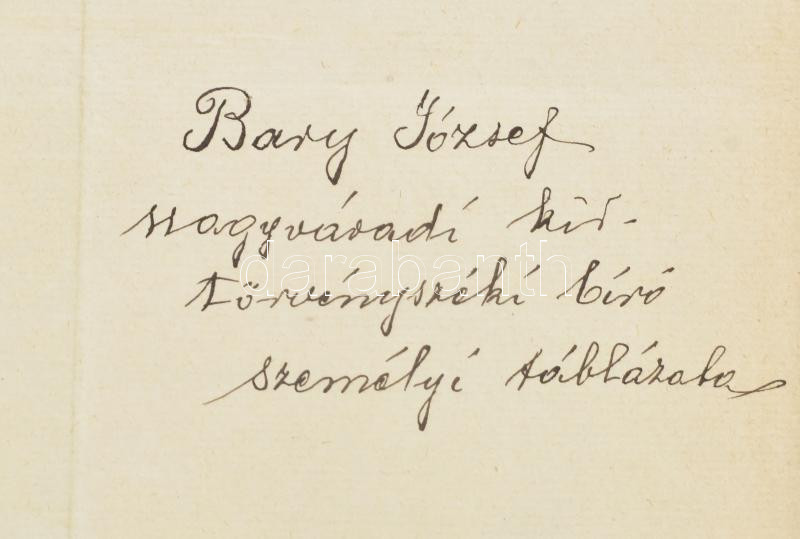 Bary József
nagyváradi kir.
darabanth
törvényszéki bíró
személyi táblázata